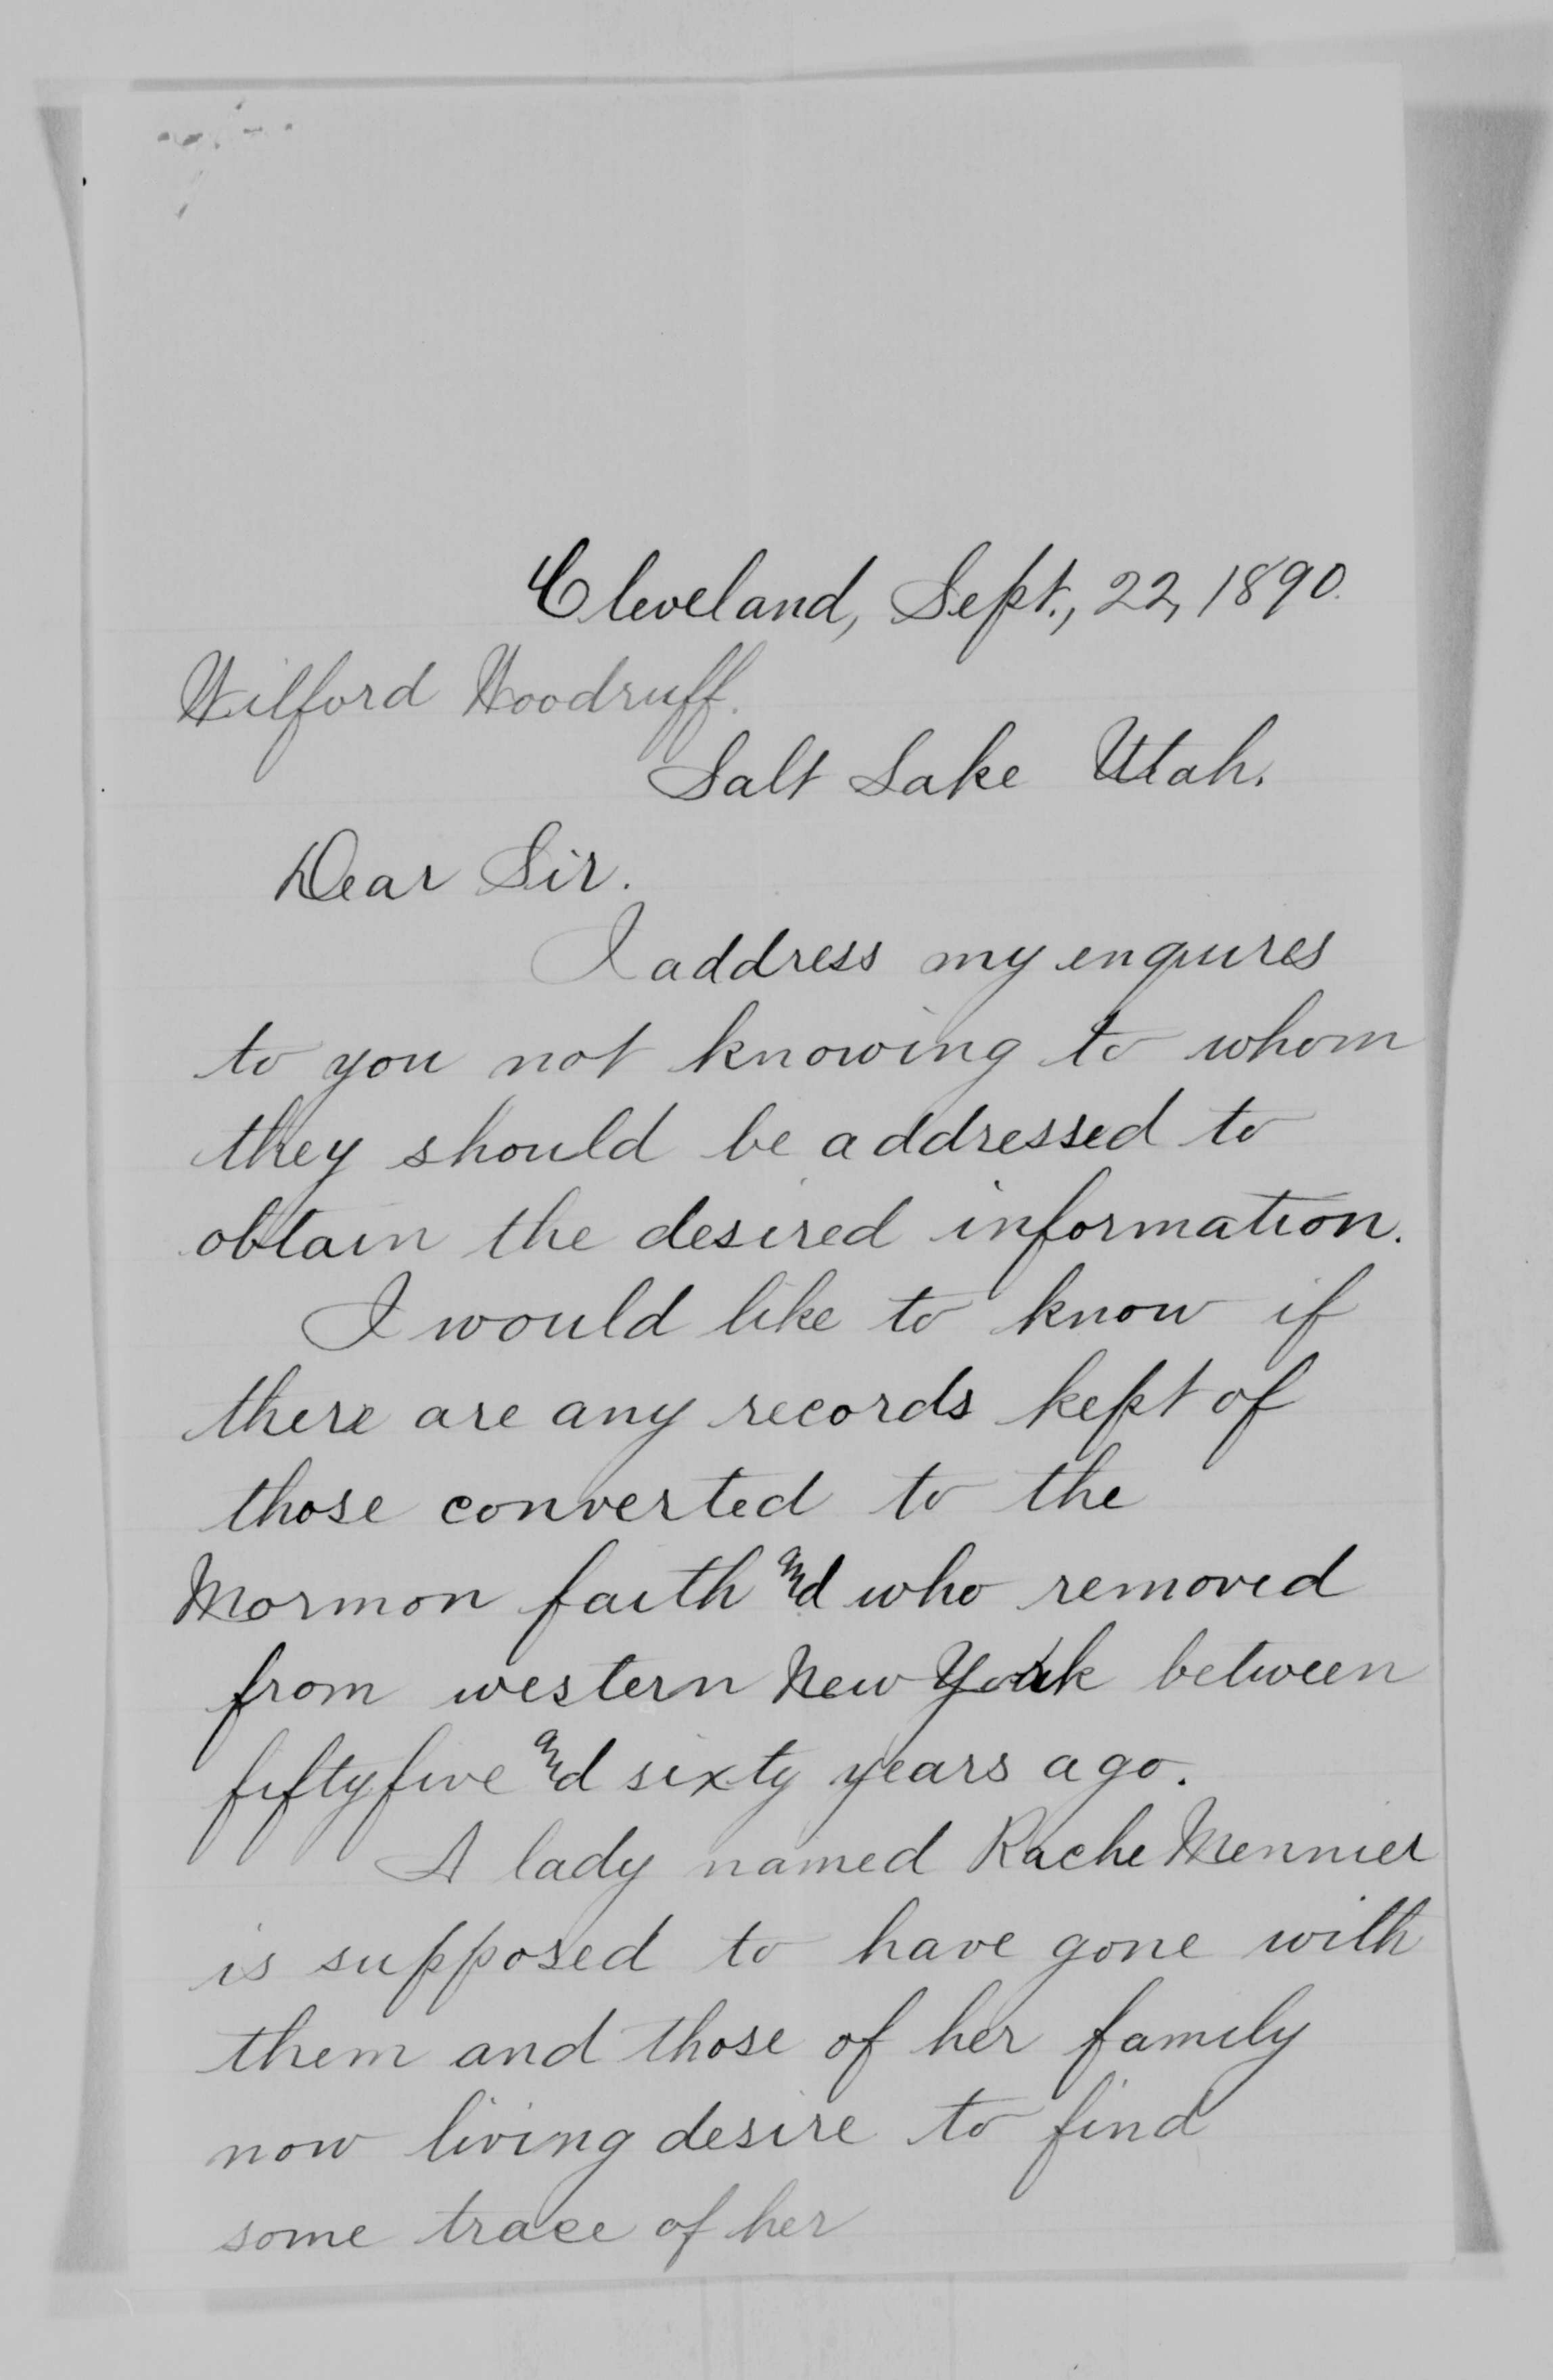 Cleveland, Sept., 22, 1890.
Wilford Woodruff.
Salt Lake Utah.
Dear Sir.
I address my enquires
to you not knowing to whom
they should be addressed to
obtain the desired information.
I would like to know if
there are any records kept of
those converted to the
Mormon faith and who removed
from western New York between
fiftyfive and sixty years ago.
A lady named Rache Mennier
is supposed to have gone with
them and those of her family
now living desire to find
some trace of her